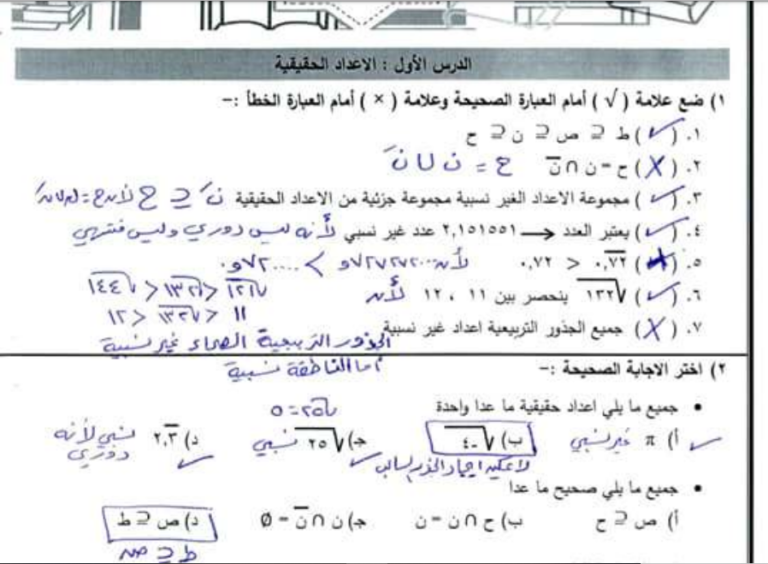 الدرس الأول : الاعداد الحقيقية
١) ضع علامة ( √ ) أمام العبارة الصحيحة وعلامة ( × ) أمام العبارة الخطأ :-
١. ( ✓ ) ط ⊆ ص ⊆ ن ⊆ ح
٢. ( X ) ح = ن ∩ ن̅ ح = ن ∪ نَ
٣. ( ✓ ) مجموعة الاعداد الغير نسبية مجموعة جزئية من الاعداد الحقيقية نَ ⊆ ح لأن ح = ن ∪ نَ
٤. ( ✓ ) يعتبر العدد ٢,١٥١٥٥١ ⟵ عدد غير نسبي لأنه ليس دوري وليس منتهي
٥. ( ) ٠,٧٢̅ > ٠,٧٢ لأن
٦. ( ✓ ) √١٣٢ ينحصر بين ١١ ، ١٢ لأن √١٢١ < √١٣٢ < √١٤٤
١١ < √١٣٢ < ١٢
٧. ( X ) جميع الجذور التربيعية اعداد غير نسبية الجذور التربيعية الصماء غير نسبية
أما الناطقة نسبية
٢) اختر الاجابة الصحيحة :-
• جميع ما يلي اعداد حقيقية ما عدا واحدة √٢٥ = ٥
أ) π غير نسبي ✓ ب) √-٤ ج) √٢٥ نسبي د) ٢,٣̅ نسبي لأنه دوري ✓
لا يمكن ايجاد الجذر لسالب ✓
• جميع ما يلي صحيح ما عدا
أ) ص ⊆ ح ب) ح ∩ ن = ن ج) ن ∩ ن̅ = Ø د) ص ⊆ ط
ط ⊆ ص